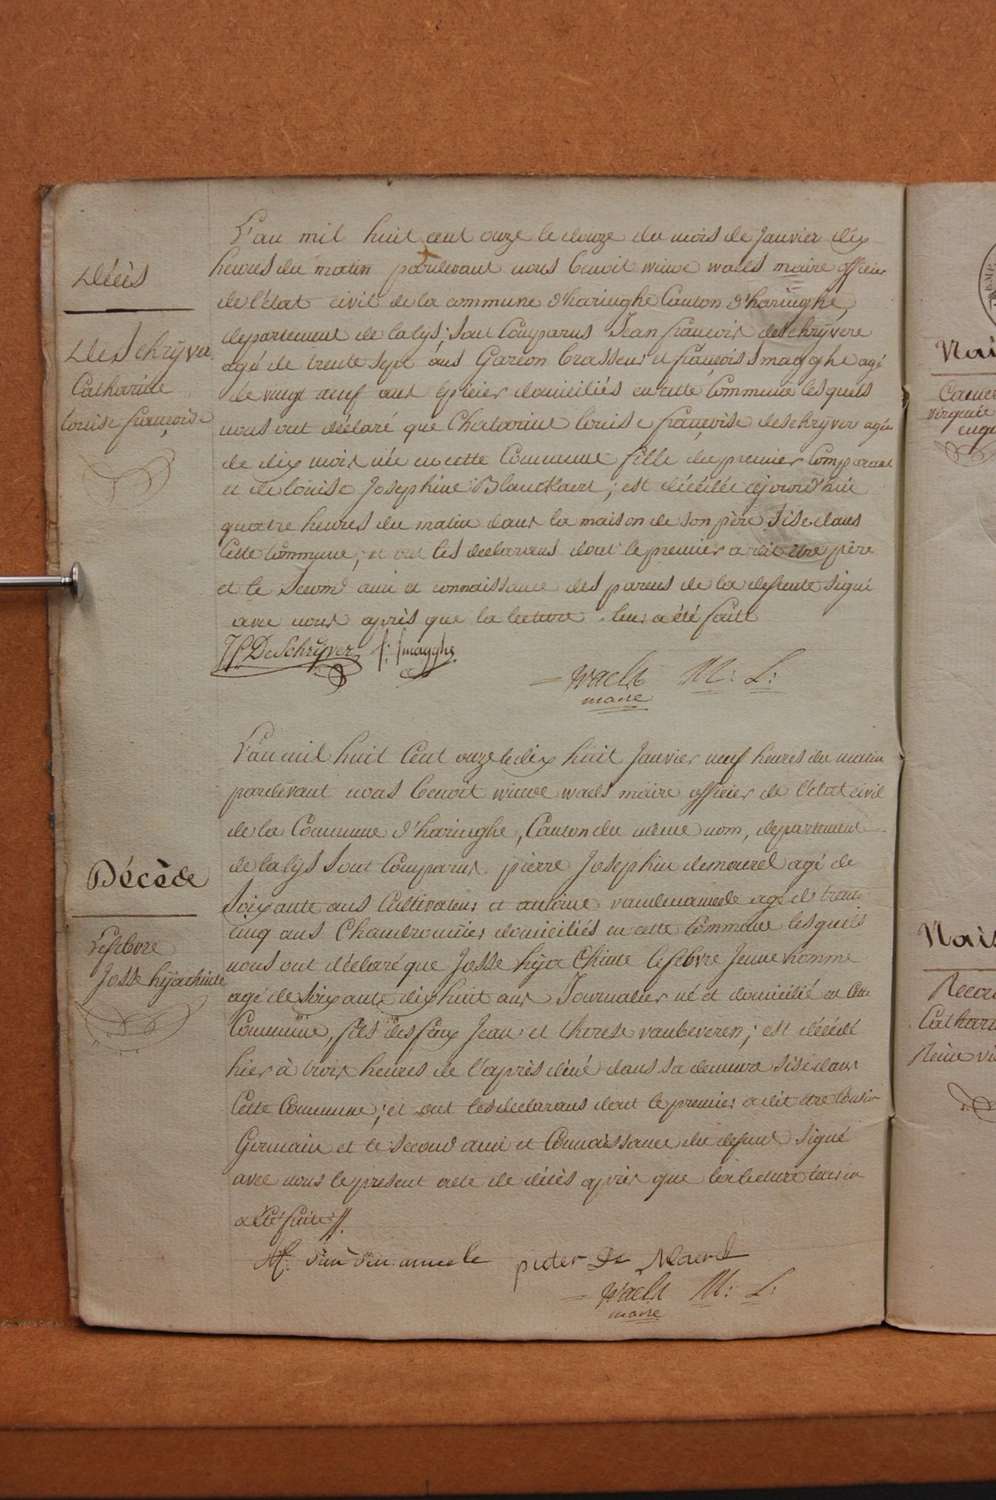 Décès
DeSchryver
Catharine
Louise françoise
L'an mil huit cent onze le douze du mois de Janvier dix
heures du matin pardevant nous Benoit winoc waels maire officier
de l'état civil de la commune d'haringhe Canton d'haringhe,
departement de la lys; sont Comparus Jean françois deschryvere
agé de trente sept ans Garçon Brasseur et françois smagghe agé
de vingt neuf ans Epicier domiciliés en cette Commune lesquels
nous ont déclaré que Chatarine Louise françoise deschryver agée
de dix mois née en cette Commune fille du premier Comparant
et de Louise Josephine Blanckaert; est décédée cejourd'hui
quatre heures du matin dans la maison de son père sise dans
Cette Commune; et ont les declarans dont le premier a dit etre père
et le second ami et connaissance des parens de la defunte signé
avec nous après que la lecture leur a été faite
JfDeSchryver f: smagghe
waels M: L:
maire
Décède
Lefebvre
Josse hijachinte
L'an mil huit Cent onze le dix huit Janvier neuf heures du matin
pardevant nous Benoit winoc waels maire officier de l'état civil
de la Commune d'haringhe, Canton du même nom, departement
de la lys sont Comparus pierre Josephin demourel agé de
Soixante ans Cultivateur et antoine vandenameele agé de trente
cinq ans Chambronnier domiciliés en cette Commune lesquels
nous ont déclaré que Josse hija Chinte Lefebvre Jeune homme
agé de Soixante dix huit ans Journalier né et domicilié en Cette
Commune, fils des feux Jean et therese vanbeveren; est décédé
hier à trois heures de l'après diné dans sa demeure sise dans
Cette Commune; et ont les declarans dont le premier a dit etre Cousin
Germain et le second ami et Connaissance du defunt signé
avec nous le present acte de décès après que la lecture leur en
a été faite
pieter De
waels M: L:
maire
Nai
Nais
Cathar